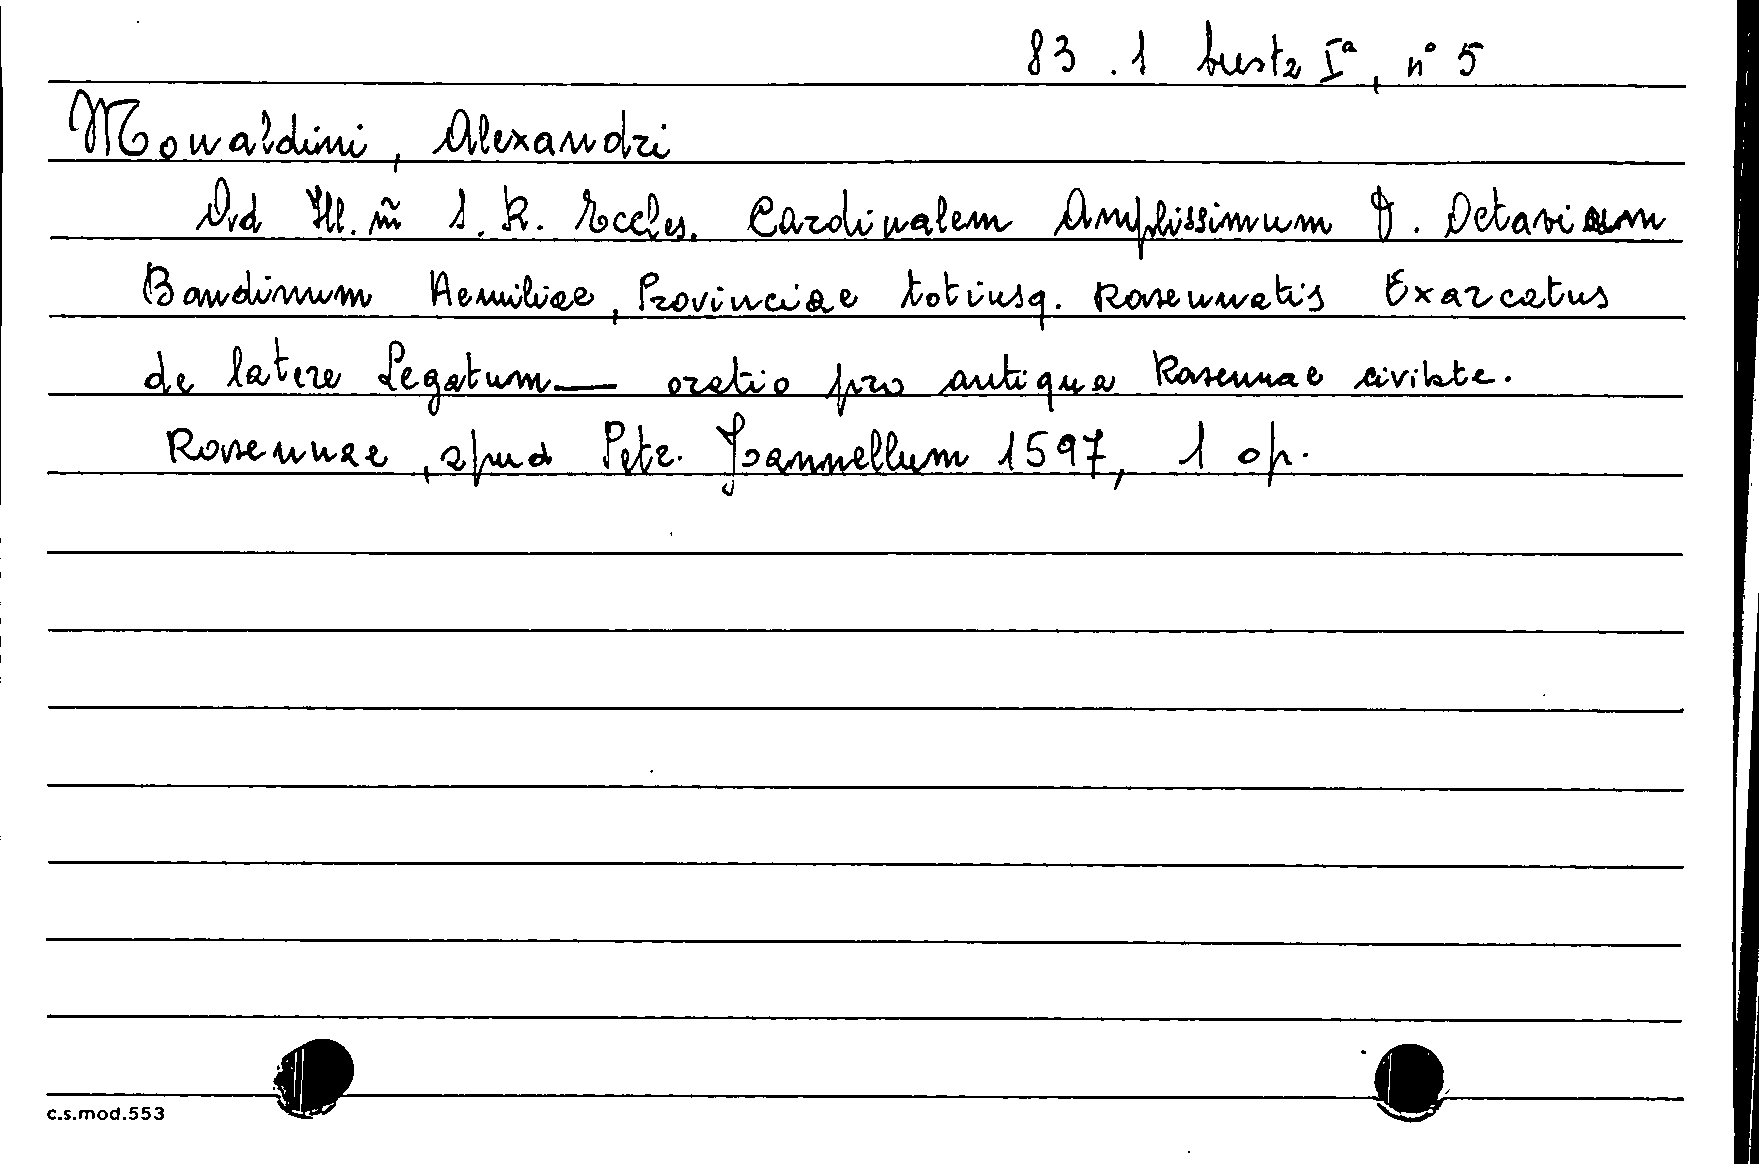 83.1 busta Iª, n° 5
Monaldini, Alexandri
Ad Ill.m̃ S. R. Eccles. Cardinalem Amplissimum D. Octavium
Bandinum Aemiliae, Provinciae totiusq. Ravennatis Exarcatus
de latere Legatum — oratio pro antiqua Ravennae civitate.
Ravennae, apud Petr. Joannellum 1597, 1 op.
c.s.mod.553